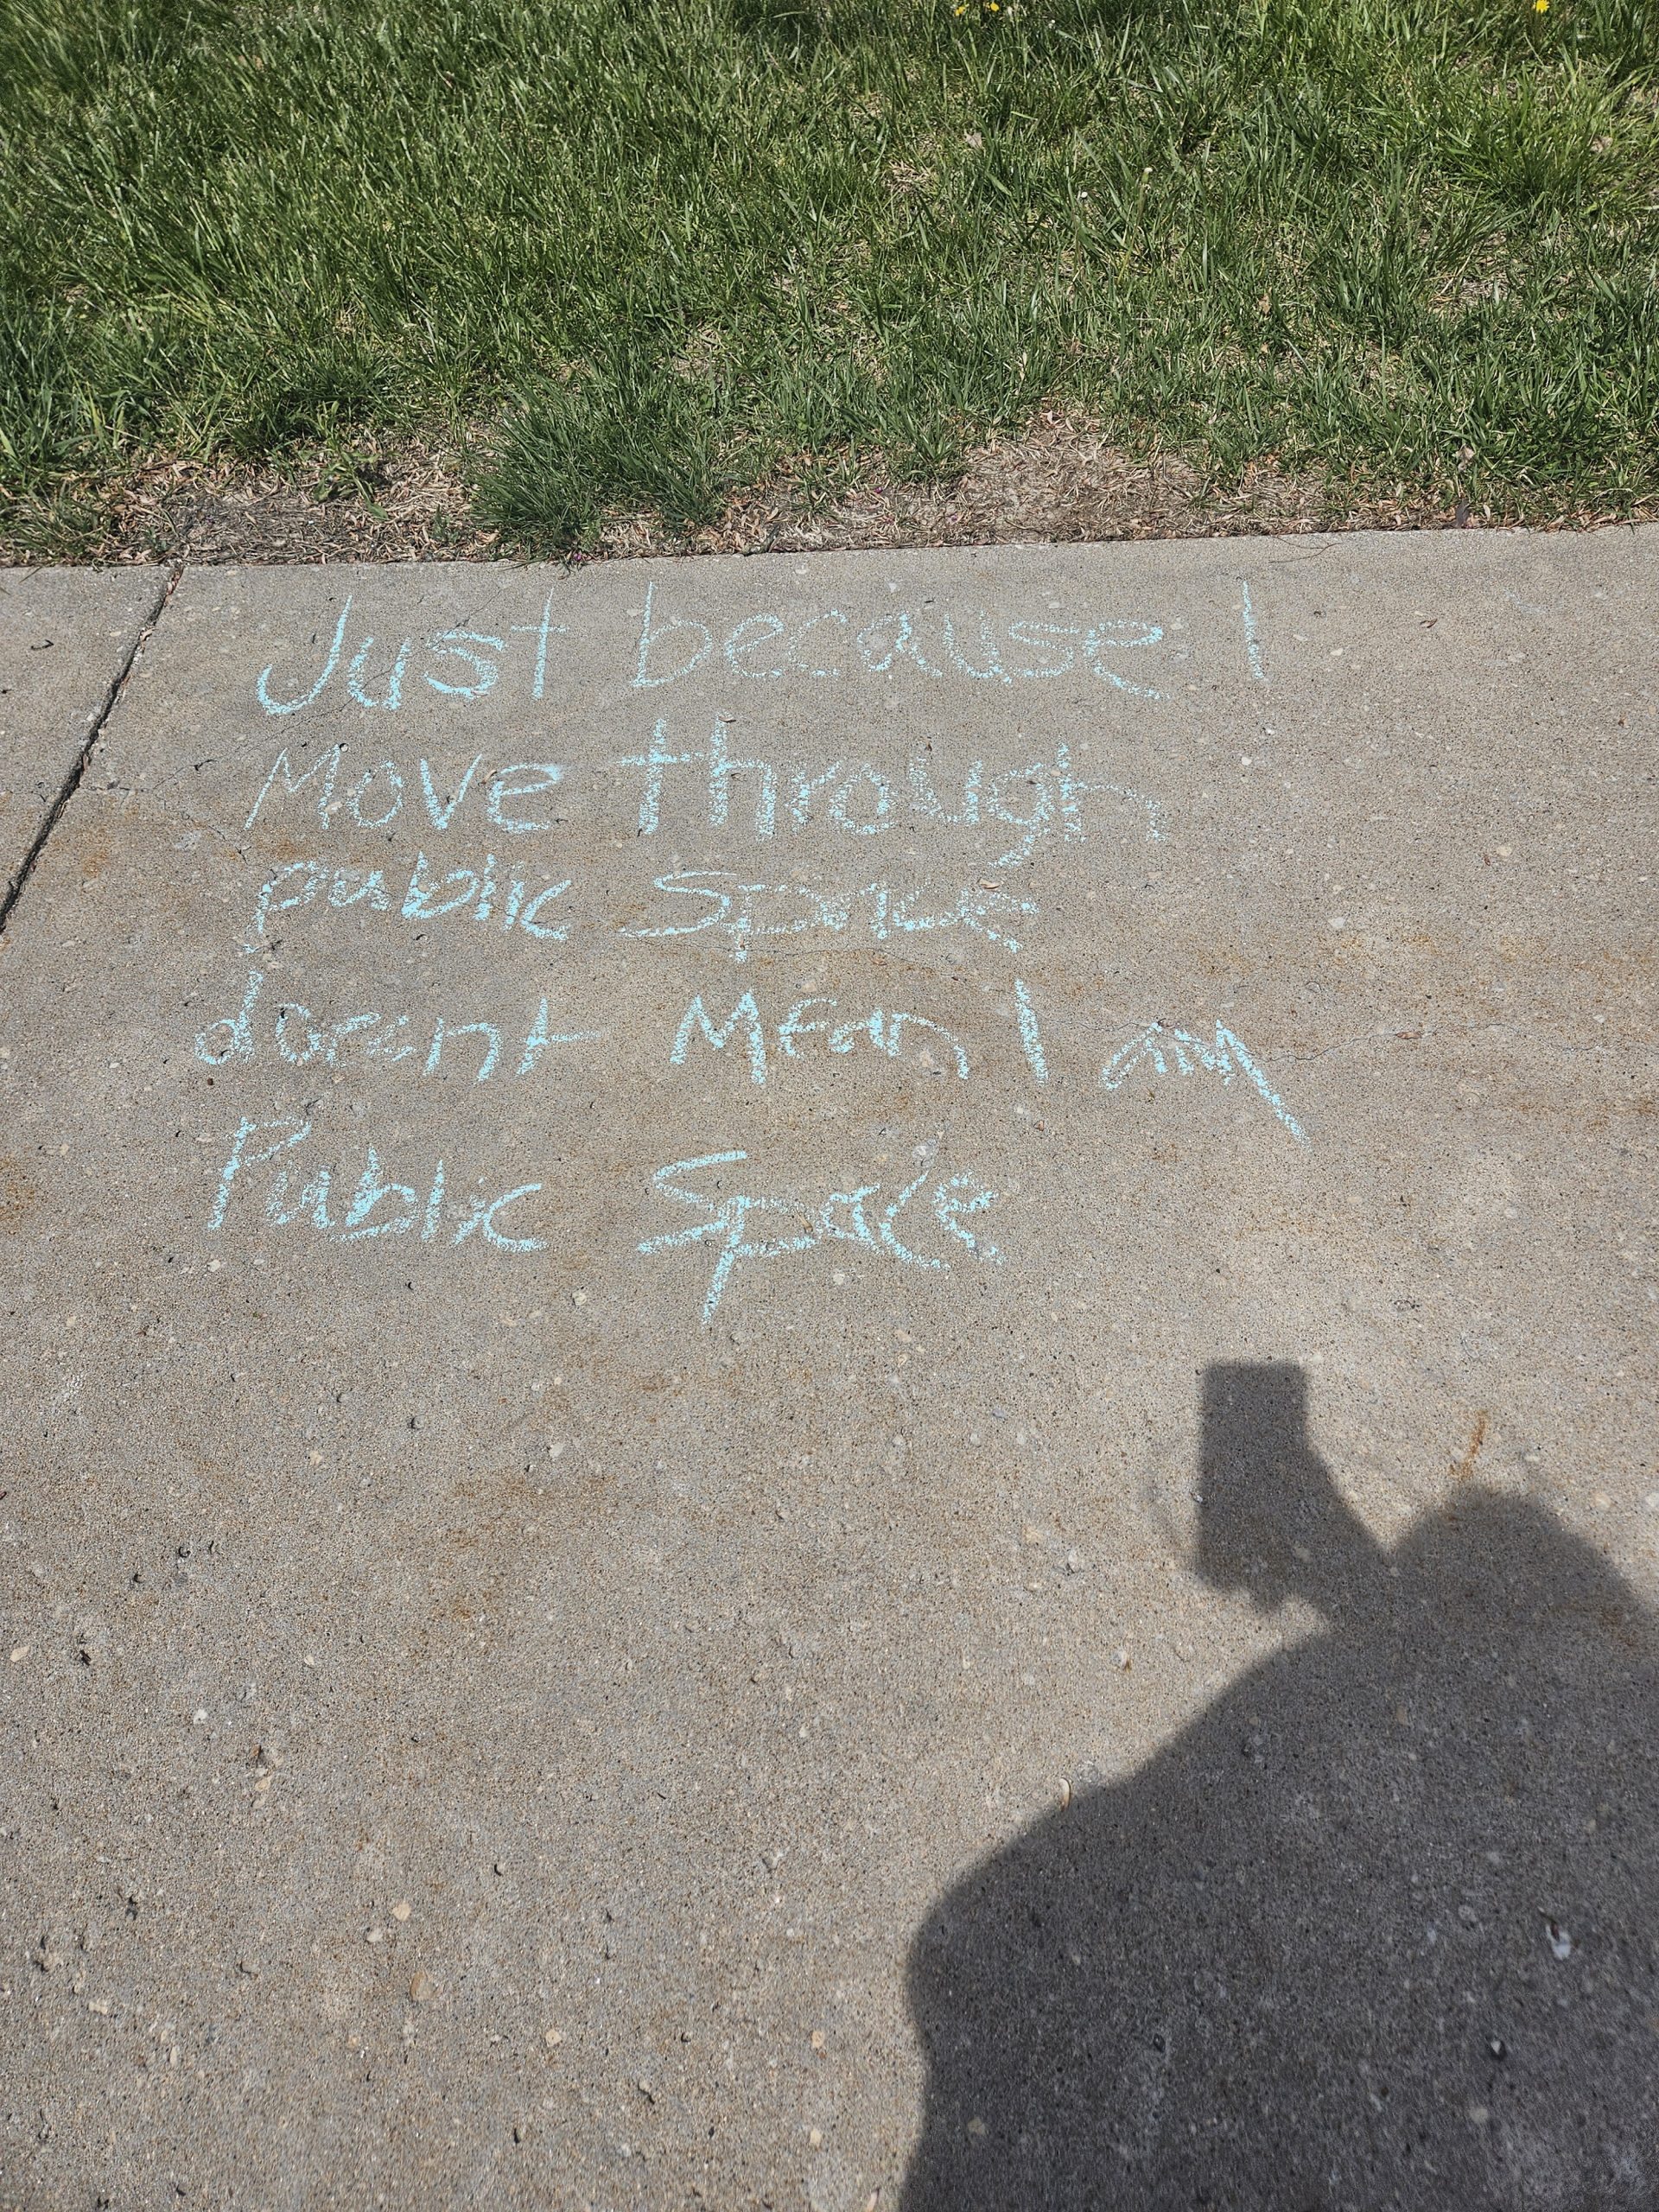 Just because I
Move through
public Space
doesnt Mean I am
Public Space